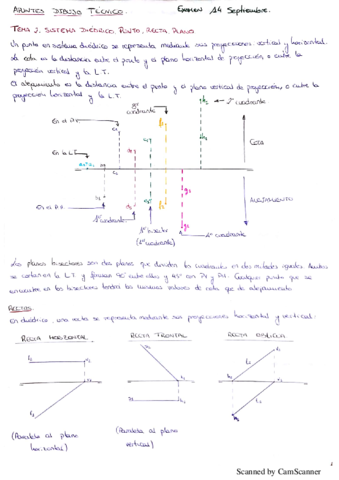 APUNTES DIBUJO TÉCNICO. Examen 14 Septiembre.
TEMA 2. SISTEMA DIÉDRICO. PUNTO, RECTA PLANO
Un punto en sistema diédrico se representa mediante sus proyecciones vertical y horizontal.
La cota es la distancia entre el punto y el plano horizontal de proyección o entre la
proyección vertical y la L.T.
El alejamiento es la distancia entre el punto y el plano vertical de proyección, o entre la
proyección horizontal y la L.T.
cuadrante
2º cuadrante
En el
COTA
En la L.T
ALEJAMIENTO
En el P.V.
1º cuadrante
1º bisector
(1º cuadrante)
4º cuadrante
Los planos bisectores son dos planos que dividen los cuadrantes en dos mitades iguales. Ambos
se cortan en la L.T. y forman 90° entre ellos y 45° con PH y PV. Cualquier punto que se
encuentre en los bisectores tendrá los mismos valores de cota que de alejamiento
RECTAS.
En diédrico, una recta se representa mediante sus proyecciones horizontal y vertical:
RECTA HORIZONTAL RECTA FRONTAL RECTA OBLICUA
(Paralela al plano
horizontal)
(Paralela al plano
vertical)
Scanned by CamScanner